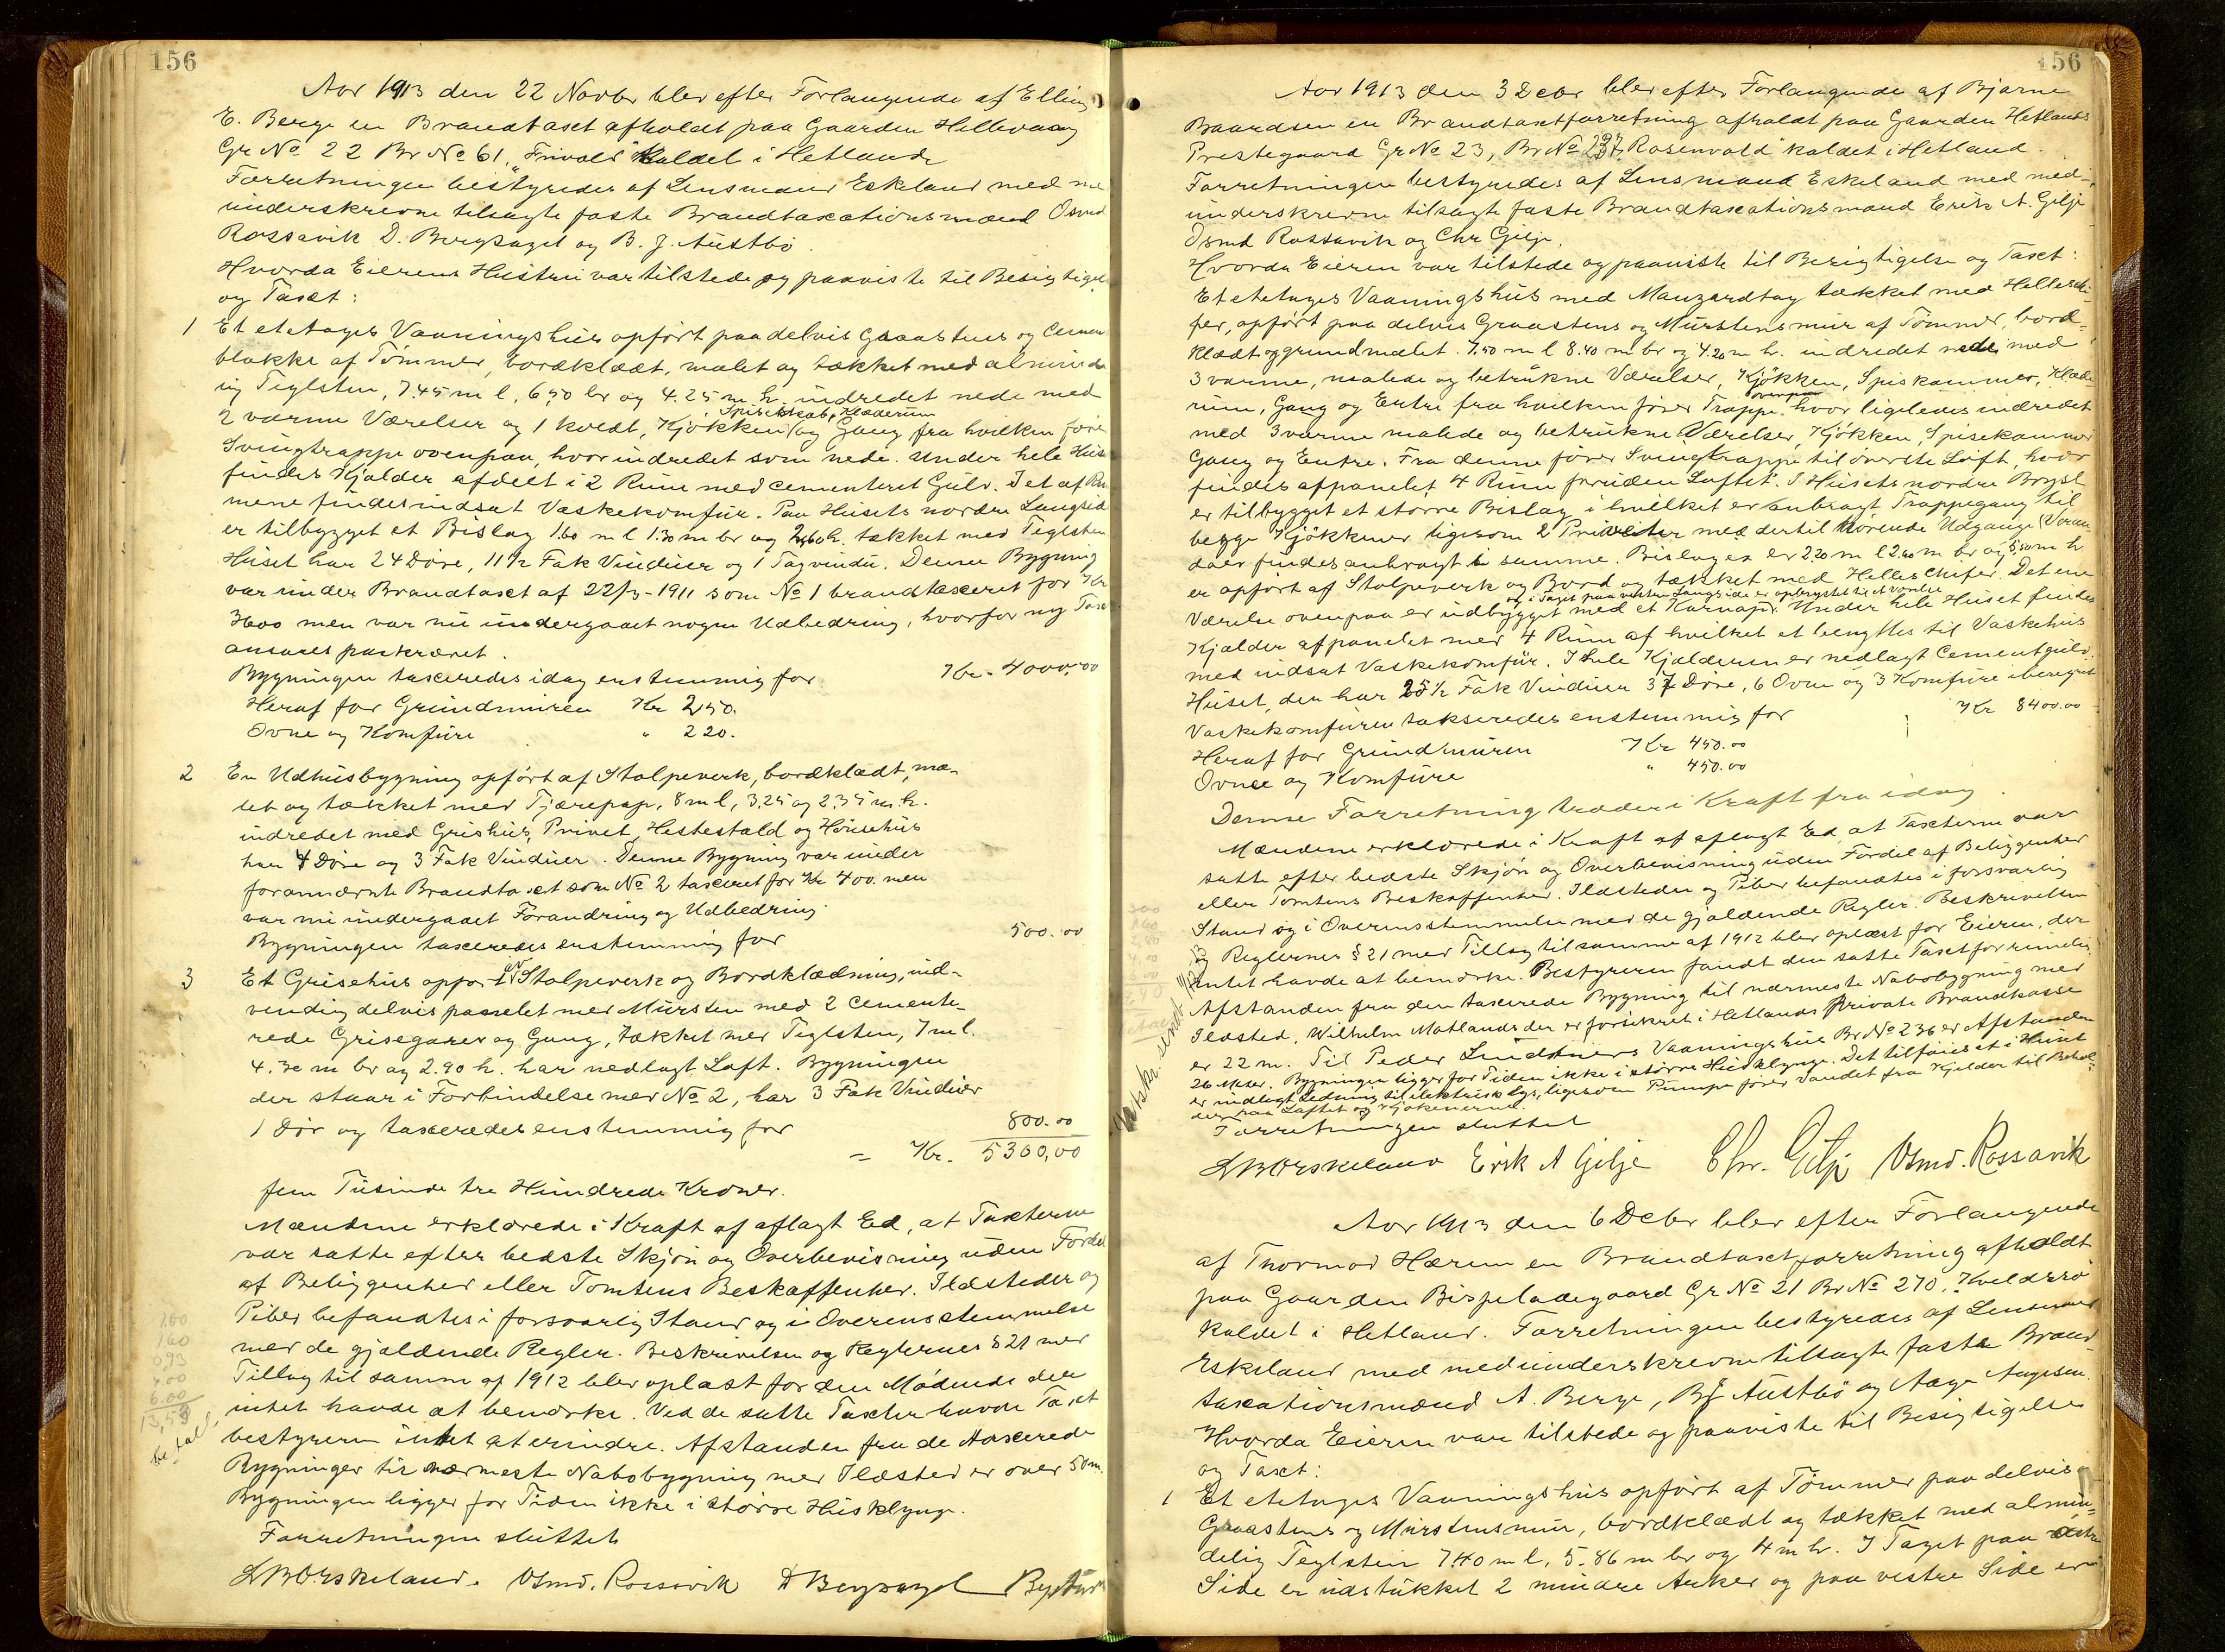 156
Aar 1913 den 22 Novbr blev efter Forlangende af Elling
E. Berge en Brandtaxt afholdt paa Gaarden Hillevaag
Gr No 22 Br No 61, "Frivold" kaldet i Hetland
Forretningen bestyredes af Lensmand Eskeland med med
underskrevne tilsagte faste Brandtaxationsmænd Osmd
Rossavik D. Bergsagel og B. J. Austbø.
Hvorda Eierens Hustru var tilstede og paaviste til Besigtigel
og Taxt:
1 Et etetages Vaaningshus opført paa delvis Graastens og Cement
blokke af Tømmer, bordklædt, malet og tækket med alminde
lig Teglsten, 7.45 m l, 6,50 br og 4.25 m h. indredet nede med
2 varme Værelser og 1 koldt, Kjøkken, Spiseskab, Klæderum og Gang fra hvilken fører
Svingtrappe ovenpaa, hvor indredet som nede. Under hele Huset
findes Kjælder afdelt i 2 Rum med cementeret Gulv. I et af Rum
mene findes indsat Vaskekomfur. Paa Husets nordre Langside
er tilbygget et Bislag 1.60 m l 1.30 m br og 2,60 h. tækket med Teglsten
Huset har 24 Døre, 11 1/2 Fak Vinduer og 1 Tagvindu. Denne Bygning
var under Brandtaxt af 22/3-1911 som No 1 brandtaxeret for Kr
3600 men var nu undergaaet nogen Udbedring, hvorfor ny Taxt
ansaaes paakrævet.
Bygningen taxeredes idag enstemmig for Kr. 4000,00
Heraf for Grundmuren Kr 250.
Ovne og Komfure " 220.
2 En Udhusbygning opført af Stolpeverk, bordklædt, ma-
let og tækket med Tjærepap, 8 m l, 3.25 og 2.35 m h.
indredet med Grishus, Privet, Hestestald og Hønsehus
har 4 Døre og 3 Fak Vinduer. Denne Bygning var under
forannævnte Brandtaxt som No 2 taxeret for Kr 400. men
var nu undergaaet Forandring og Udbedring.
Bygningen taxeredes enstemmig for 500.00
3 Et Grisehus opført af Stolpeverk og Bordklædning, ind-
vendig delvis panelet med Mursten med 2 Cemente-
rede Grisegarer og Gang, tækket med Teglsten, 7 m l.
4.30 m br og 2.90 h. har nedlagt Loft. Bygningen
der staar i Forbindelse med No 2, har 3 Fak Vinduer
1 Dør og taxeredes enstemmig for 800.00
= Kr. 5300,00
fem Tusinde tre Hundrede Kroner.
Mændene erklærede i Kraft af aflagt Ed, at Taxterne
var satte efter bedste Skjøn og Overbevisning uden Fordel
af Beliggenhed eller Tomtens Beskaffenhed. Ildsteder og
Piber befandtes i forsvarlig Stand og i Overensstemmelse
med de gjældende Regler. Beskrivelsen og Reglernes § 21 med
Tillæg til samme af 1912 blev oplæst for den Mødende der
intet havde at bemærke. Ved de satte Taxter havde Taxt
bestyreren intet at erindre. Afstanden fra de taxerede
Bygninger til nærmeste Nabobygning med Ildsted er over 50 m.
Bygningen ligger for Tiden ikke i større Husklynge.
Forretningen sluttet
LBØrskeland. Osmd. Rossavik D Bergsagel
156
Aar 1913 den 3 Decbr blev efter Forlangende af Bjarne
Baardsen en Brandtaxtforretning afholdt paa Gaarden Hetlands
Prestegaard Gr No 23, Br No 237 "Rosenvold" kaldet i Hetland.
Forretningen bestyredes af Lensmand Eskeland med med-
underskrevne tilsagte faste Brandtaxationsmænd Erik A. Gilje
Osmd Rossavik og Chr Gilje.
Hvorda Eieren var tilstede og paaviste til Besigtigelse og Taxt:
Et etetages Vaaningshus med Manzardtag tækket med Helleski-
fer, opført paa delvis Graastens og Murstensmur af Tømmer, bord-
klædt og grundmalet. 7.50 m l 8.40 m br og 4.20 m h. indredet nede med
3 varme, malede og betrukne Værelser, Kjøkken, Spiskammer, Klæde
rum, Gang og Entre fra hvilken fører Trappe ovenpaa hvor ligeledes indredet
med 3 varme malede og betrukne Værelser, Kjøkken, Spisekammer
Gang og Entre. Fra denne fører Svingtrappe til øverste Loft, hvor
findes afpanelet 4 Rum foruden Loftet. I Husets nordre Bryst
er tilbygget et større Bislag i hvilket er anbragt Trappegang til
begge Kjøkkener ligesom 2 Priveter med dertil hørende Udgange (Veran
daer findes anbragt i samme. Bislaget er 2.20 m l 2.40 m br og 5.50 m h
er opført af Stolpeverk og Bord og tækket med Helleskifer. Det ene
og i Taget paa vestre Langside er opbrystet til et Værelse
Værelse ovenpaa er udbygget med et Karnap. Under hele Huset findes
Kjælder afpanelet med 4 Rum af hvilket et benyttes til Vaskehus
med indsat Vaskekomfur. I hele Kjælderen er nedlagt Cementgulv.
Huset, der har 25 1/2 Fak Vinduer 37 Døre, 6 Ovne og 3 Komfure iberegnet
Vaskekomfuren takseredes enstemmig for Kr 8400.00
Heraf for Grundmuren Kr 450.00
Ovne og Komfure " 450.00
Denne Forretning træder i Kraft fra idag.
Mændene erklærede i Kraft af aflagt Ed, at Taxterne var
satte efter bedste Skjøn og Overbevisning uden Fordel af Beliggenhed
eller Tomtens Beskaffenhed. Ildsteder og Piber befandtes i forsvarlig
Stand og i Overensstemmelse med de gjældende Regler. Beskrivelsen
og Reglernes § 21 med Tillæg til samme af 1912 blev oplæst for Eieren, der
intet havde at bemærke. Bestyreren fandt den satte Taxt for rimelig
Afstanden fra den taxerede Bygning til nærmeste Nabobygning med
Ildsted, Wilhelm Matlands der er forsikret i Hetlands Private Brandkasse
er 22 m. Til Peder Lindtners Vaaningshus Br No 236 er Afstanden
26 Meter. Bygningen ligger for Tiden ikke i større Husklynge. Det tilføies at i Huset
er indlagt Ledning til elektrisk Lys, ligesom Pumpe fører Vandet fra Kjelder til Behol-
der paa Loftet og Kjøkkenerne.
Forretningen sluttet
LBØrskeland Erik A Gilje Chr. Gilje Osmd. Rossavik
Aar 1913 den 6 Decbr blev efter Forlangende
af Thormod Hærem en Brandtaxtforretning afholdt
paa Gaarden Bispeladegaard Gr No 21 Br No 270, "Kveldsro"
kaldet i Hetland. Forretningen bestyredes af Lensmand
Eskeland med medunderskrevne tilsagte faste Brand-
taxationsmænd A. Berge, B J Austbø og Aage Aagesen.
Hvorda Eieren var tilstede og paaviste til Besigtigelse
og Taxt:
1 Et etetages Vaaningshus opført af Tømmer paa delvis
Graastens og Murstensmur, bordklædt og tækket med almin-
delig Teglsten 7.40 m l, 5.86 m br og 4 m h. I Taget paa østre
Side er udstukket 2 mindre Arker og paa vestre Side er